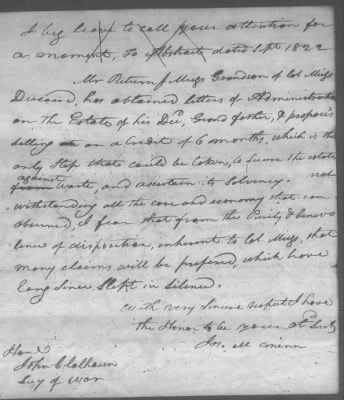 I beg leave to call your attention for
a moment, to Abstracts dated Sept 1822
Mr Return J Meigs Grandson of Col. Meigs
Deceased, has obtained letters of Administration
on The Estate of his Dec. Grand father, & proposes
selling on a Credit of 6 months, which is the
only Step that could be taken, to Secure the estate
against
from waste, and ascertain its Solvency. not
withstanding all the care and economy that can
observed, I fear that from the Purity & benevo
lence of disposition, inherent to Col. Meigs, that
many claims will be prefered, which have
long Since Slept in Silence.
With very Sincere respect I have
the Honor to be your Obt Sert
Jos. McMinn
Honl
John C Calhoun
Secy of War